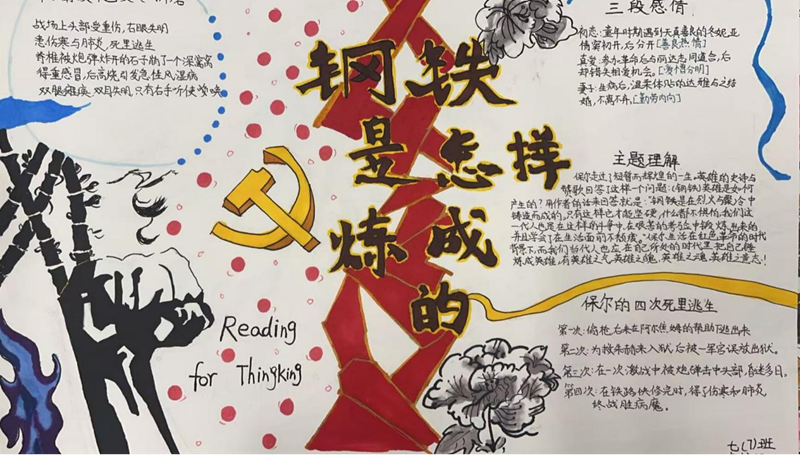 战场上头部受重伤,右眼失明
患伤寒与肺炎,死里逃生
脊椎被炮弹炸开的石子砸了一个深窝窝
得重感冒后,高烧引发急性风湿病
双腿瘫痪、双目失明,只有右手听使唤
三段感情
初恋:童年时期遇到天真善良的冬妮亚
情窦初开,后分开[善良热情]
真爱:参加革命后与丽达志同道合,后
却错失相爱机会。[爱憎分明]
妻子:生病后,温柔体贴的达雅与之结
婚,不离不弃,[勤劳内向]
钢铁
是怎样
炼成
的
主题理解
保尔走过了短暂而辉煌的一生,英雄的史诗与
赞歌回答了这样一个问题:《钢铁》英雄是如何
产生的?用作者的话来回答就是:"钢铁是在烈火与骤冷中
铸造而成的。只有这样才能坚硬,什么都不惧怕,我们这
一代人也是在这样的斗争中,在艰苦的考验中锻炼出来的
并且学会了在生活面前不颓废。"保尔生活在红色革命的时代
背景下,而我们每代人也应在自己所处的时代里把自己锤
炼成英雄,有英雄之气,英雄之魄,英雄之魂,英雄之意志!
保尔的四次死里逃生
第一次:后来在阿尔焦姆的帮助下逃出来
第二次:为救朱赫来入狱,后被一军官误放出狱。
第三次:在一次激战中被炮弹击中头部,昏迷多日。
第四次:在铁路快修完时,得了伤寒和肺炎
终战胜病魔。
Reading
for Thingking
七(7)班